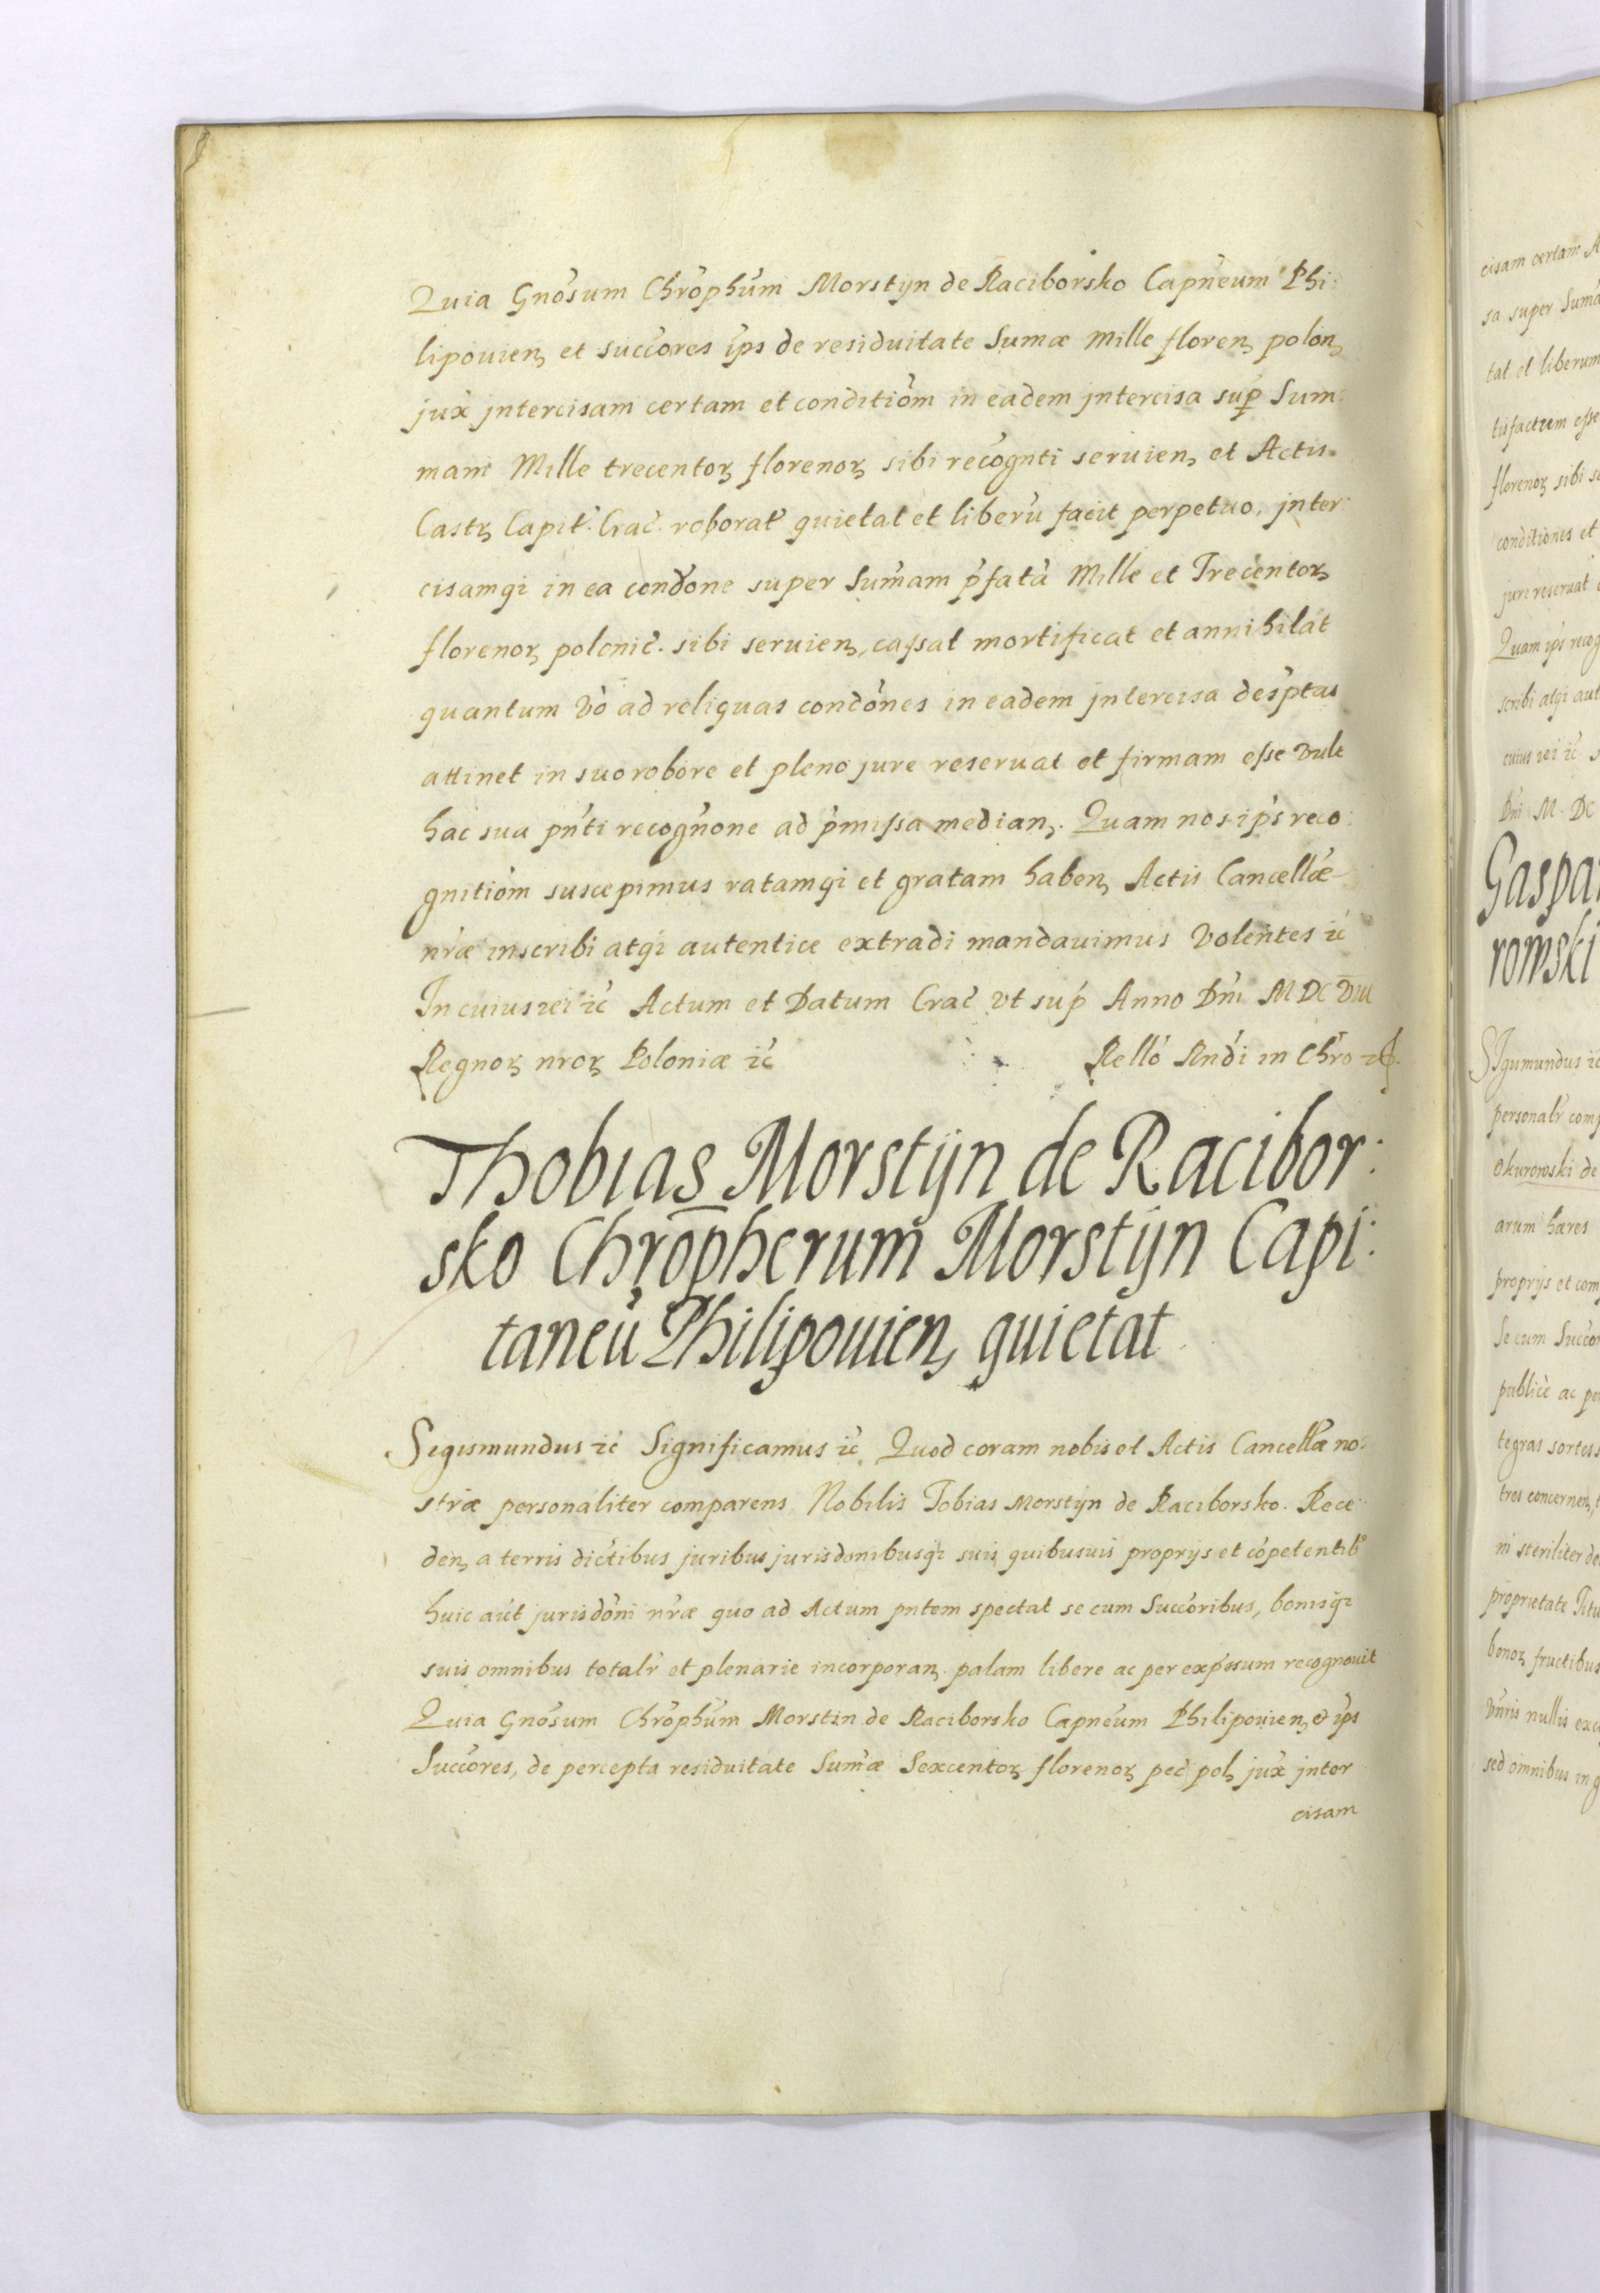 Quia Gnosum Chrophum Morstyn de Raciborsko Capneum Phi:
lipouien, et succores ips de residuitate Sumæ Mille floren, polon,
jux jntercisam certam et conditiom in eadem jntercisa sup Sum:
mam Mille trecentoꝝ florenoꝝ sibi recognti seruien, et Actis
Castꝝ Capit. Crac. roborat quietat et liberu facit perpetuo, jnter:
cisamqꝫ in ea condone super Sumam pfata Mille et Trecentoꝝ
florenoꝝ polonic. sibi seruien, cassat mortificat et annihilat
quantum vo ad reliquas condones in eadem jntercisa desptas
attinet in suo robore et pleno jure reseruat et firmam esse vult
hac sua pnti recognone ad pmissa median,. Quam nos ips reco:
gnitiom suscepimus ratamqꝫ et gratam haben, Actis Cancellæ
nræ inscribi atqꝫ autentice extradi mandauimus Volentes ꝛc
In cuius rei ꝛc Actum et Datum Crac vt sup Anno Dni M DC VIII
Regnoꝝ nroꝝ Poloniæ ꝛc Rello Rndi in Chro
Thobias Morstyn de Racibor:
sko Chropherum Morstyn Capi:
taneu Philipouien, quietat
Sigismundus ꝛc Significamus ꝛc Quod coram nobis et Actis Cancellæ no:
stræ personaliter comparens Nobilis Tobias Morstyn de Raciborsko. Rece:
den, a terris dictibus juribus jurisdonibusqꝫ suis quibusuis proprijs et copetentibꝰ
huic aut jurisdoni nræ quo ad Actum pntem spectat se cum Succoribus, bonisqꝫ
suis omnibus totalr et plenarie incorporan, palam libere ac per expssum recognouit
Quia Gnosum Chrophum Morstin de Raciborsko Capneum Philipouien, & ips
Succores, de percepta residuitate Sumæ Sexcentoꝝ florenoꝝ pec pol, jux jnter
cisam
cisam certam
sa super Suma
tat et liberum
tisfactum esse
florenoꝝ sibi
conditiones et
jure reseruat
Quam ips recog
scribi atqꝫ aut
cuius rei ꝛc
Dni M. DC
Gaspar
rowski
Sigismundus ꝛc
personalr com
Okurowski de
arum hæres
proprijs et com
Se cum Succo
publice ac pe
tegras sortes
tres concernen,
ni steriliter de
proprietate Titu
bonoꝝ fructibus
vnris nullis exc
sed omnibus in g